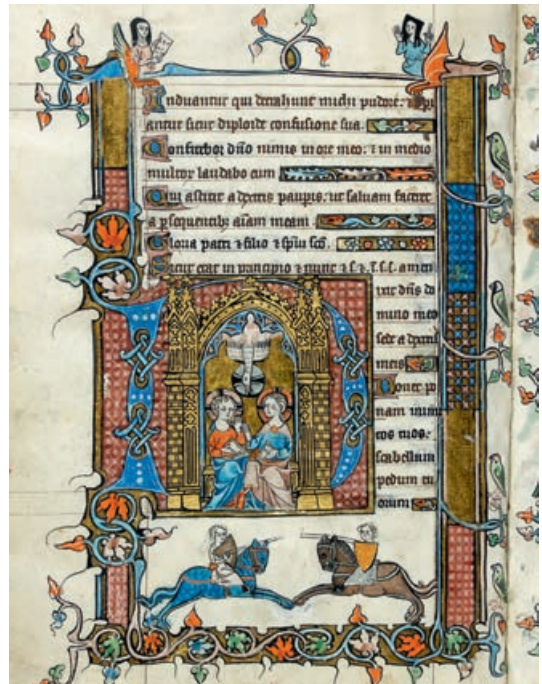 Induantur qui detrahunt michi pudore: ⁊ opi
antur sicut diploide confusione sua.
Confitebor dño nimis in ore meo: ⁊ in medio
multor laudabo eum
Qui astitit a dextris paupis: ut saluam faceret
a psequentib; aiam meam.
Gloria patri ⁊ filio ⁊ spiu sco.
Sicut erat in principio ⁊ nunc ⁊ amen
Dixit dns do
mino meo
sede a dextris
meis
Donec po
nam inimi
cos tuos:
scabellum
pedum tu
orum